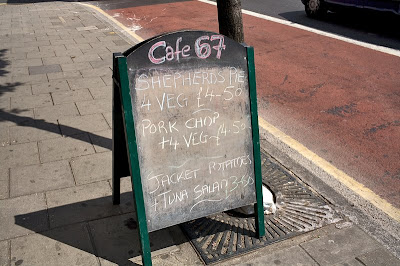 Cafe 67
SHEPHERDS PIE
4 VEG £4-50
PORK CHOP
+4 VEG £4.50
JACKET POTATOES
+ TUNA SALAD 3-60